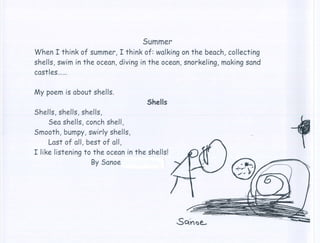 Summer
When I think of summer, I think of: walking on the beach, collecting
shells, swim in the ocean, diving in the ocean, snorkeling, making sand
castles.....
My poem is about shells.
Shells
Shells, shells, shells,
Sea shells, conch shell,
Smooth, bumpy, swirly shells,
Last of all, best of all,
I like listening to the ocean in the shells!
By Sanoe
Sanoe